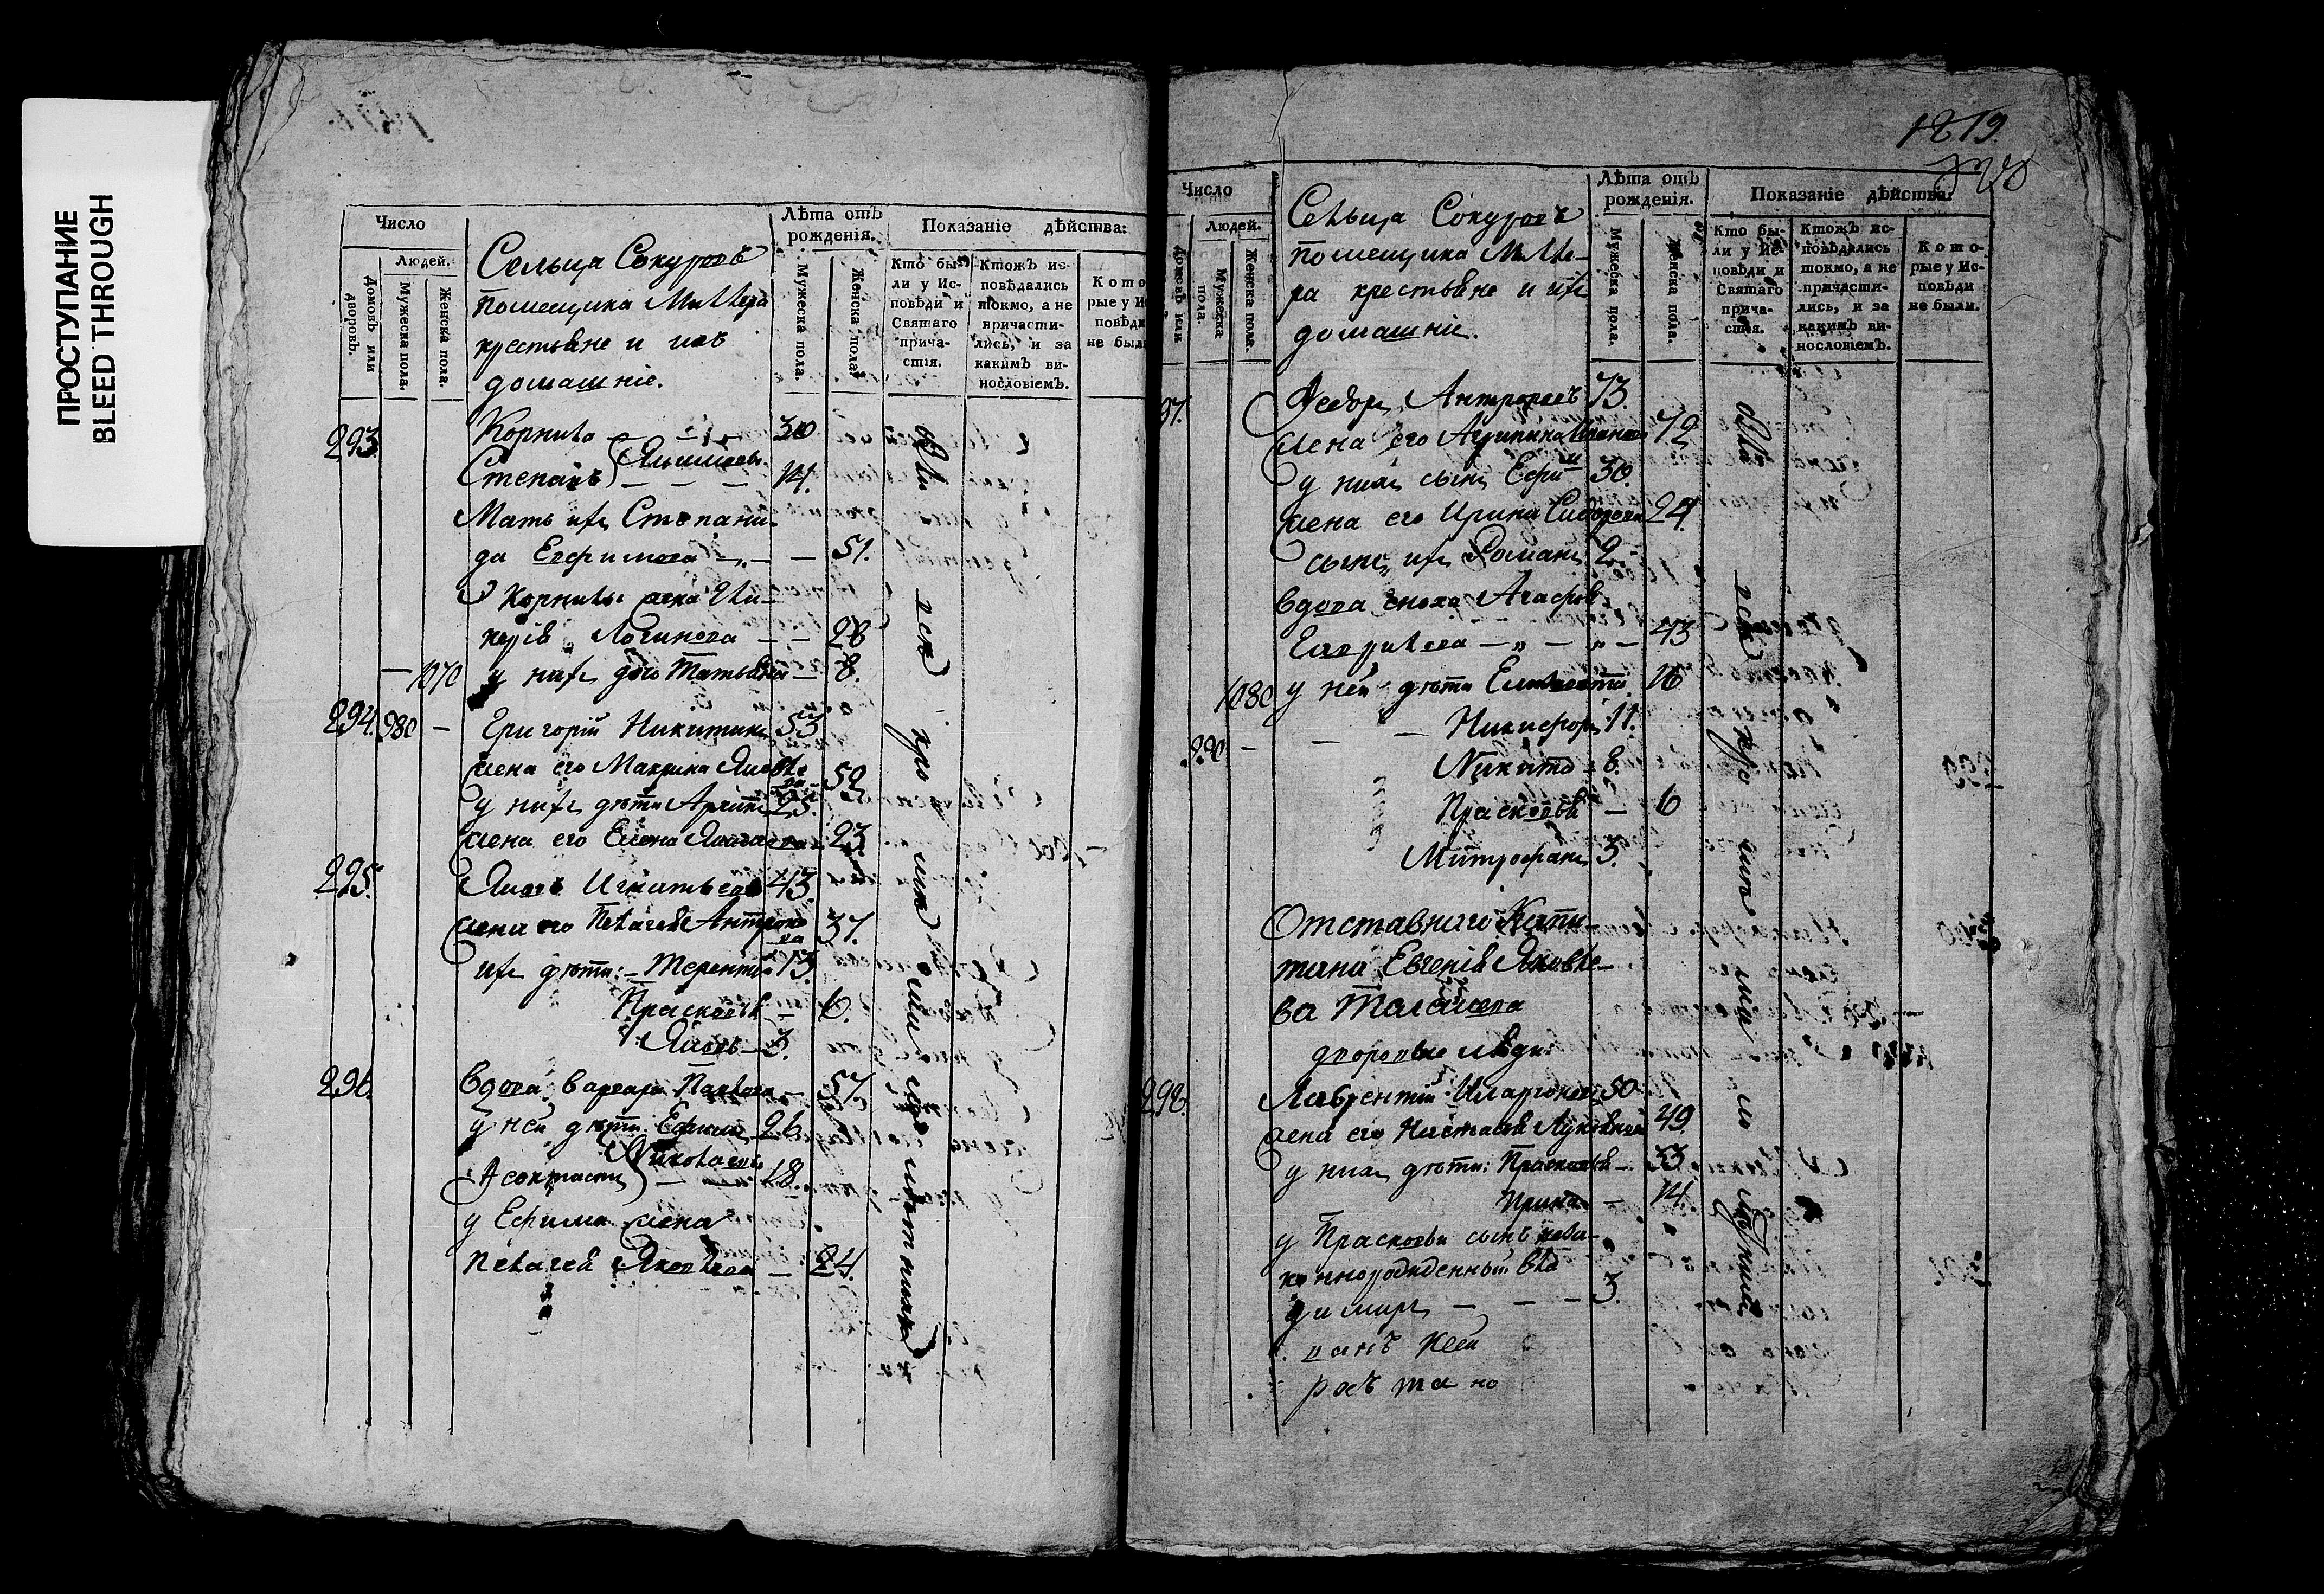 ПРОСТУПАНИЕ
BLEED THROUGH
Число
Людей.
Домовъ или дворовъ.
Мужеска пола.
Женска пола.
Сельца Сокуровъ
помещика Миллера
крестьяне и ихъ
домашніе.
Лѣта отъ рожденія.
Мужеска пола.
Женска пола.
Показаніе дѣйства:
Кто были у Исповѣди и Святаго причастія.
Ктожъ исповѣдались токмо, а не причастились, и за какимъ винословіемъ.
Которые у Ис
повѣди
не был
293. Корнило 30
Степанъ 14.
Мать ихъ Степани-
да Евфимова 51.
Корнилы жена Гли-
керія Логинова 28
1070 у нихъ дочь Татьяна 8.
294. 980 Григорій Никитинъ 53
жена его Макрина Яковле
ва 52
у нихъ дѣти Архипъ 25.
жена его Елена 23.
295. Яковъ Игнатьевъ 43.
жена его Пелагея Антропо
ва 37.
ихъ дѣти: Терентій 13.
Прасковья 6.
Яковъ 3.
296. Вдова Варвара Павлова 57.
у ней дѣти: Ефимъ 26.
Николаевы
18.
у Ефима жена
Пелагея Яковлева 24.
всѣ кромѣ малолѣтнихъ
1219.
Число
Людей.
Домовъ или
Мужеска пола.
Женска пола.
Сельца Сокуровъ
помещика Милле-
ра крестьяне и ихъ
домашніе.
Лѣта отъ рожденія.
Мужеска пола.
Женска пола.
Показаніе дѣйства:
Кто были у Исповѣди и Святаго причастія.
Ктожъ исповѣдались токмо, а не причастились, и за какимъ винословіемъ.
Которые у Исповѣди не были.
97. Федоръ Антроповъ 73.
жена его Агрипина 72
у нихъ сынъ Ефимъ 30.
жена его Ирина Сидорова 24.
сынъ ихъ Романъ 2.
вдова сноха Агафья
Гаврилова 43
1080 у ней дѣти 16
Никифоръ 11.
990 Никита 8.
Прасковья 6
Митрофанъ 3.
Отставнаго Капи-
тана Евгенія Яковле-
ва
дворовые люди:
298. Лаврентій Иларіоновъ 50
жена его Настасья 49
у нихъ дѣти: Прасковья 33
Ирина 14.
у Прасковьи сынъ неза-
коннорожденный Вла
димиръ 3.